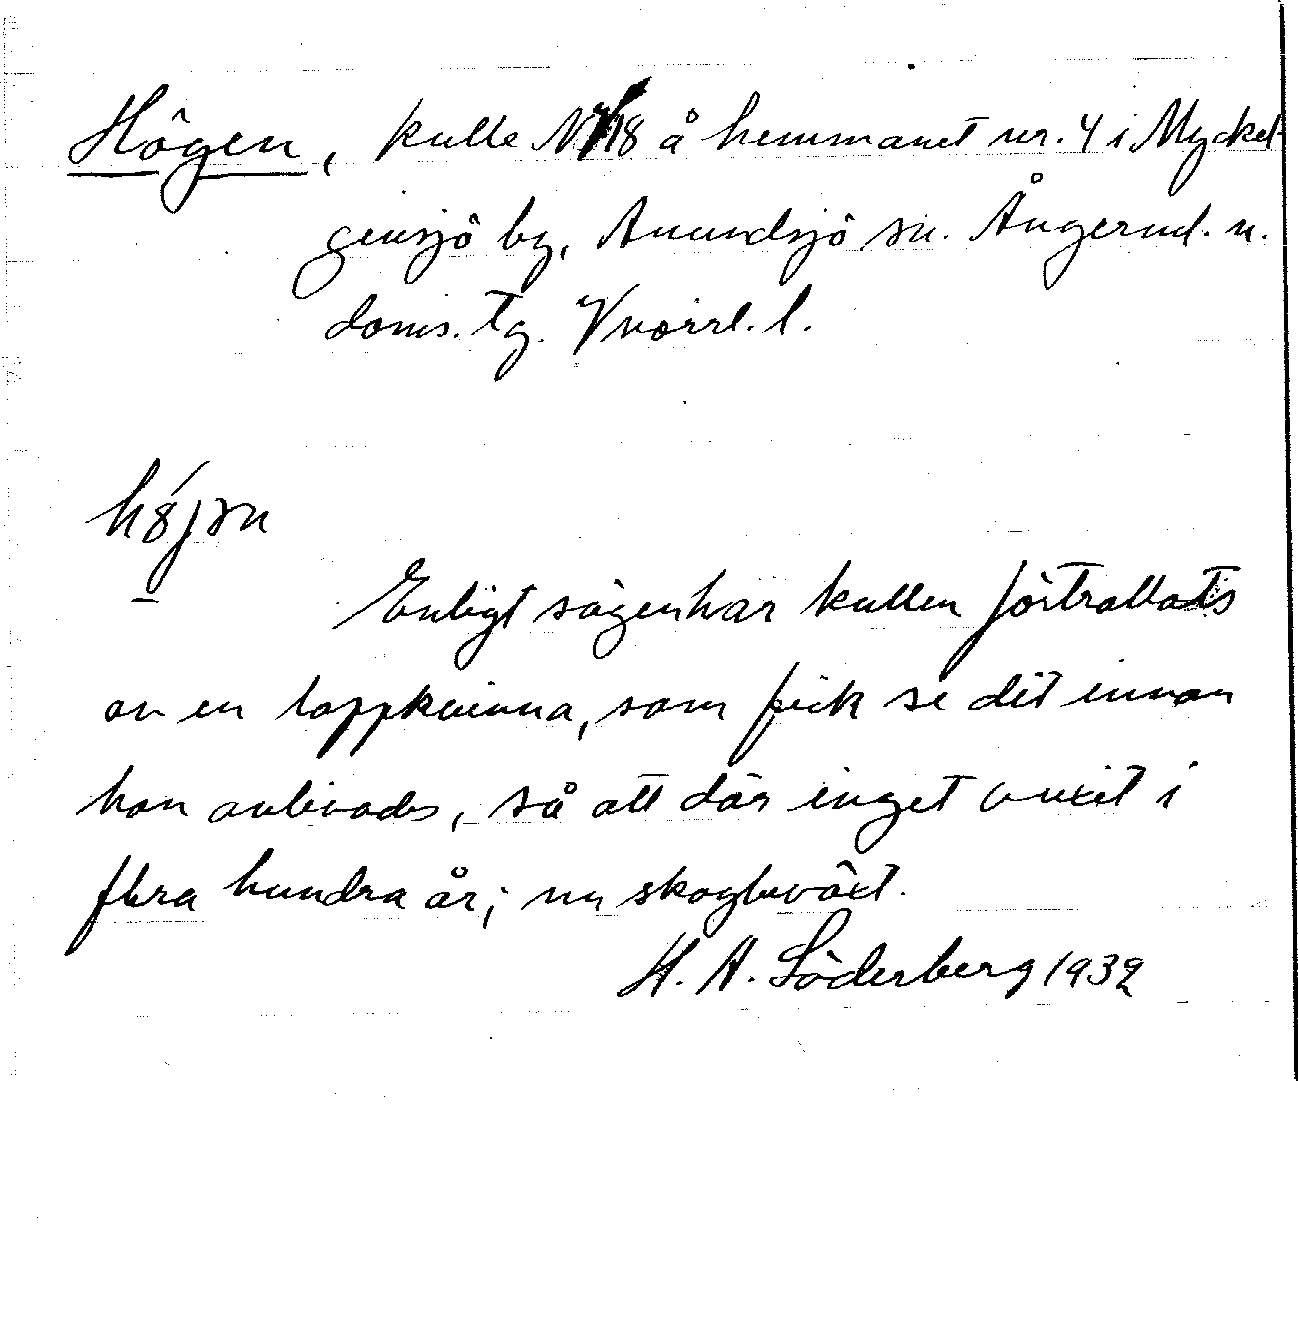 Högen, kulle N 18 å hemmanet nr. 4 i Myckel-
gensjö by, Anundsjö sn. Ångermd. n.
doms. tg. Vnorrl. l.
Enligt sägen har kullen förtrollats
av en lappkvinna, som fick se dit innan
hon avlivades, så att där inget vuxit i
flera hundra år; nu skogbeväxt.
H. A. Söderberg 1932